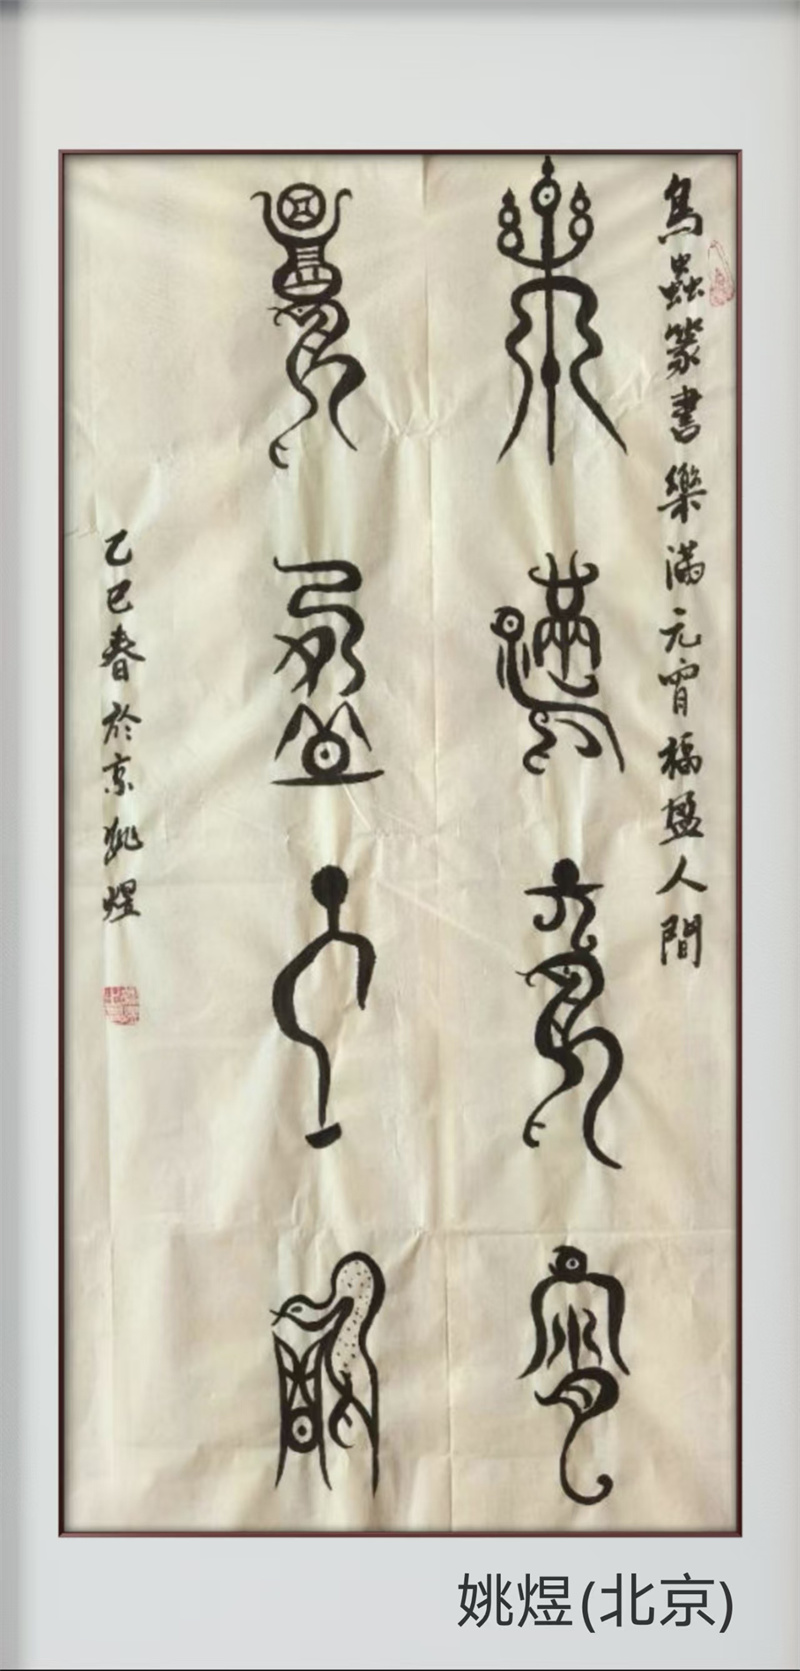 鳥蟲篆書樂滿元宵福盈人間
樂滿元宵
福盈人間
乙巳春於京姚煜
姚煜(北京)